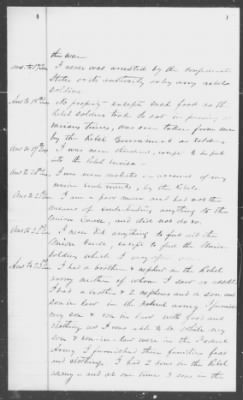 the war.
Ans. to 17th Int. I never was arrested by the Confederate
States or its authority or by any rebel
soldiers.
Ans. to 18th Int. No property except such food as the
rebel soldiers took to eat in passing at
various times, was ever taken from me
by the Rebel Government or soldiers.
Ans. to 19th Int. I was never threatened, except to be put
into the Rebel service.
Ans. to 20th Int. I was never molested on account of my
Union sentiments, by the Rebels.
Ans. to 21st Int. I am a poor man and had not the
means of contributing anything to the
Union Cause, and did not do so.
Ans. to 22d Int. I never did anything to aid the
Union Cause, except to feed the Union
soldiers which I very often
Ans. to 23d Int. I had a brother & nephew in the Rebel
Army neither of whom I saw or assisted.
I had a brother & 2 nephews and a son and
son-in-law in the Federal Army. I furnished
my son & son in law with food and
clothing as I was able to do. While my
son & son-in-law were in the Federal
Army I furnished their families food
and clothing. I had 2 sons in the Rebel
army and at one time 3 sons in the